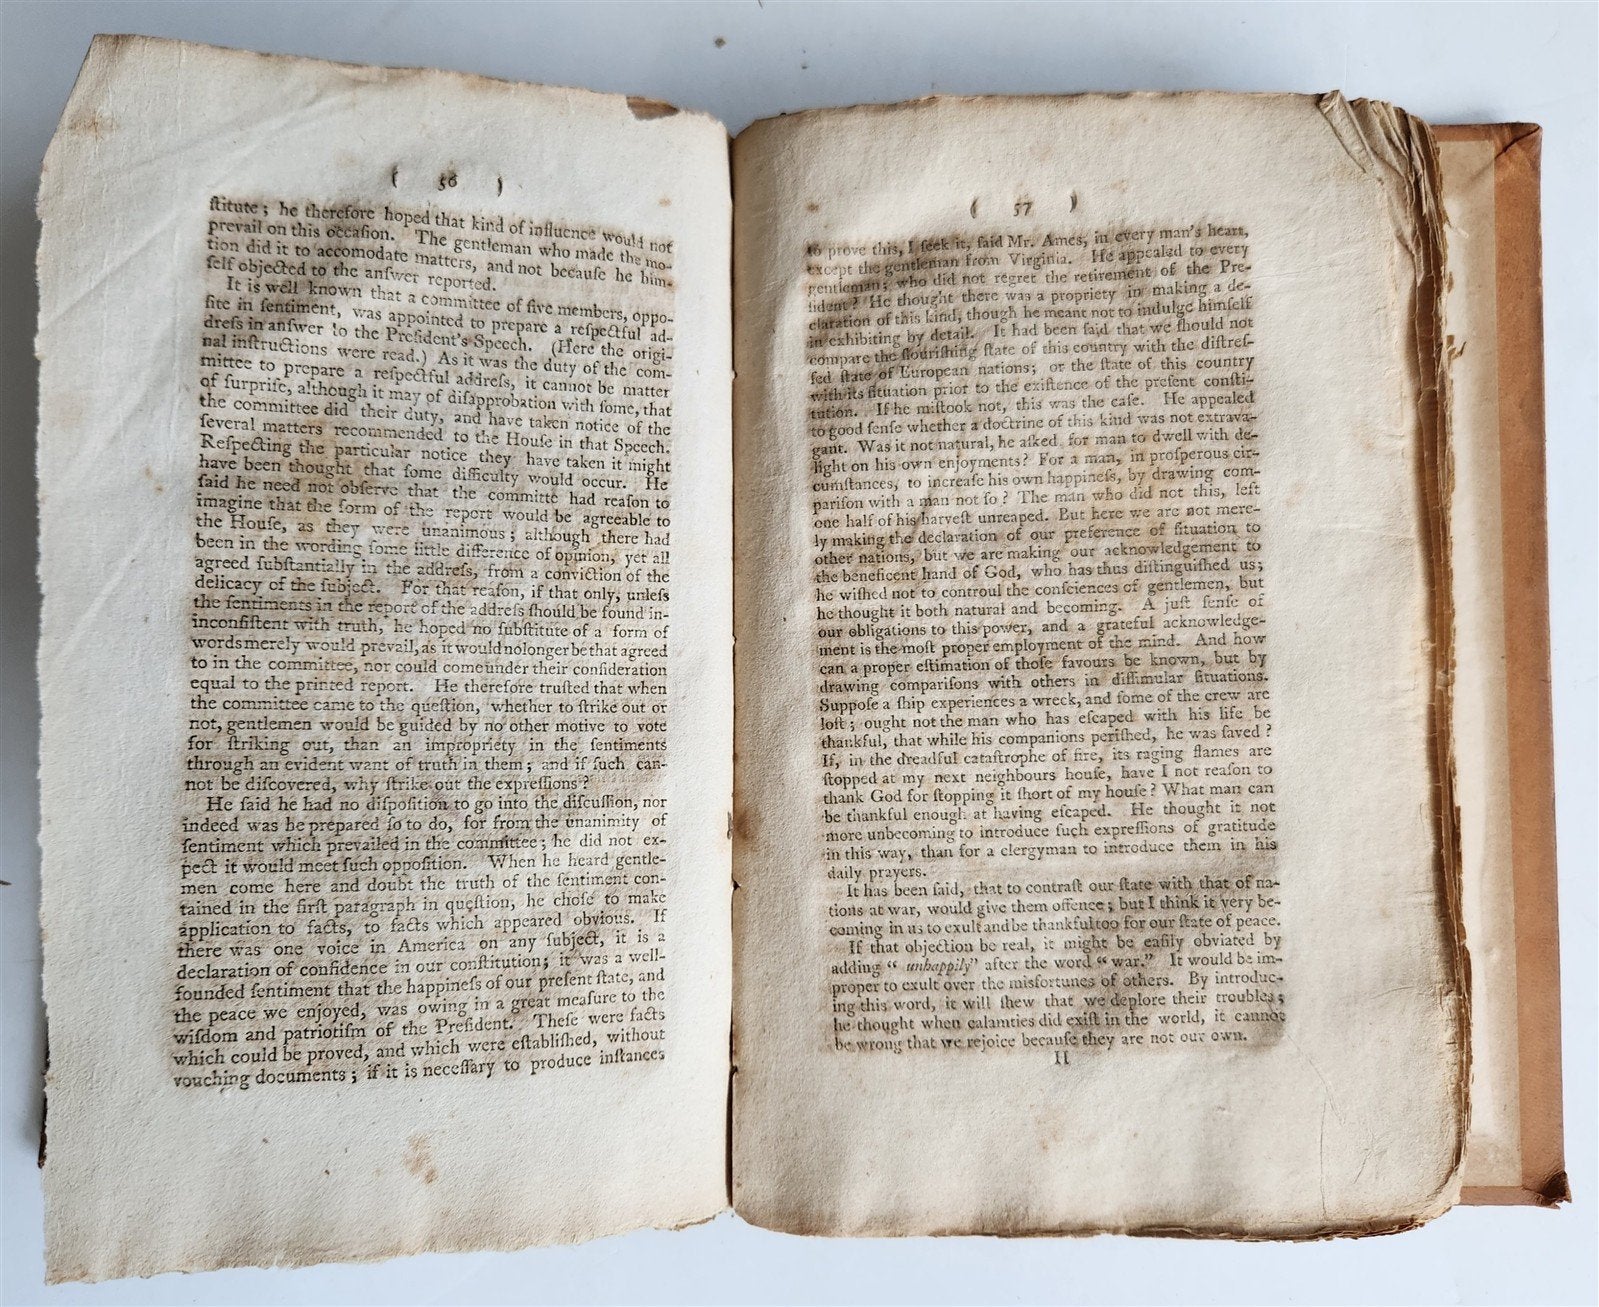 ( 56 )
ſtitute; he therefore hoped that kind of influence would not
prevail on this occaſion. The gentleman who made the mo-
tion did it to accomodate matters, and not becauſe he him-
ſelf objected to the anſwer reported.
It is well known that a committee of five members, oppo-
ſite in ſentiment, was appointed to prepare a reſpectful ad-
dreſs in anſwer to the Preſident's Speech. (Here the origi-
nal inſtructions were read.) As it was the duty of the com-
mittee to prepare a reſpectful addreſs, it cannot be matter
of ſurpriſe, although it may of diſapprobation with ſome, that
the committee did their duty, and have taken notice of the
ſeveral matters recommended to the Houſe in that Speech.
Reſpecting the particular notice they have taken it might
have been thought that ſome difficulty would occur. He
ſaid he need not obſerve that the committe had reaſon to
imagine that the form of the report would be agreeable to
the Houſe, as they were unanimous; although there had
been in the wording ſome little difference of opinion, yet all
agreed ſubſtantially in the addreſs, from a conviction of the
delicacy of the ſubject. For that reaſon, if that only, unleſs
the ſentiments in the report of the addreſs ſhould be found in-
inconſiſtent with truth, he hoped no ſubſtitute of a form of
words merely would prevail, as it would no longer be that agreed
to in the committee, nor could come under their conſideration
equal to the printed report. He therefore truſted that when
the committee came to the queſtion, whether to ſtrike out or
not, gentlemen would be guided by no other motive to vote
for ſtriking out, than an impropriety in the ſentiments
through an evident want of truth in them; and if ſuch can-
not be diſcovered, why ſtrike out the expreſſions?
He ſaid he had no diſpoſition to go into the diſcuſſion, nor
indeed was he prepared ſo to do, for from the unanimity of
ſentiment which prevailed in the committee; he did not ex-
pect it would meet ſuch oppoſition. When he heard gentle-
men come here and doubt the truth of the ſentiment con-
tained in the firſt paragraph in queſtion, he choſe to make
application to facts, to facts which appeared obvious. If
there was one voice in America on any ſubject, it is a
declaration of confidence in our conſtitution; it was a well-
founded ſentiment that the happineſs of our preſent ſtate, and
the peace we enjoyed, was owing in a great meaſure to the
wiſdom and patriotiſm of the Preſident. Theſe were facts
which could be proved, and which were eſtabliſhed, without
vouching documents; if it is neceſſary to produce inſtances
( 57 )
to prove this, I ſeek it, ſaid Mr. Ames, in every man's heart,
except the gentleman from Virginia. He appealed to every
gentleman; who did not regret the retirement of the Pre-
ſident? He thought there was a propriety in making a de-
claration of this kind, though he meant not to indulge himſelf
in exhibiting by detail. It had been ſaid that we ſhould not
compare the flouriſhing ſtate of this country with the diſtreſ-
ſed ſtate of European nations; or the ſtate of this country
with its ſituation prior to the exiſtence of the preſent conſti-
tution. If he miſtook not, this was the caſe. He appealed
to good ſenſe whether a doctrine of this kind was not extrava-
gant. Was it not natural, he aſked, for man to dwell with de-
light on his own enjoyments? For a man, in proſperous cir-
cumſtances, to increaſe his own happineſs, by drawing com-
pariſon with a man not ſo? The man who did not this, left
one half of his harveſt unreaped. But here we are not mere-
ly making the declaration of our preference of ſituation to
other nations, but we are making our acknowledgement to
the beneficent hand of God, who has thus diſtinguiſhed us;
he wiſhed not to controul the conſciences of gentlemen, but
he thought it both natural and becoming. A juſt ſenſe of
our obligations to this power, and a grateful acknowledge-
ment is the moſt proper employment of the mind. And how
can a proper eſtimation of thoſe favours be known, but by
drawing compariſons with others in diſſimular ſituations.
Suppoſe a ſhip experiences a wreck, and ſome of the crew are
loſt; ought not the man who has eſcaped with his life be
thankful, that while his companions periſhed, he was ſaved?
If, in the dreadful cataſtrophe of fire, its raging flames are
ſtopped at my next neighbours houſe, have I not reaſon to
thank God for ſtopping it ſhort of my houſe? What man can
be thankful enough at having eſcaped. He thought it not
more unbecoming to introduce ſuch expreſſions of gratitude
in this way, than for a clergyman to introduce them in his
daily prayers.
It has been ſaid, that to contraſt our ſtate with that of na-
tions at war, would give them offence; but I think it very be-
coming in us to exult and be thankful too for our ſtate of peace.
If that objection be real, it might be eaſily obviated by
adding "unhappily" after the word "war." It would be im-
proper to exult over the misfortunes of others. By introduc-
ing this word, it will ſhew that we deplore their troubles;
he thought when calamties did exiſt in the world, it cannot
be wrong that we rejoice becauſe they are not our own.
H